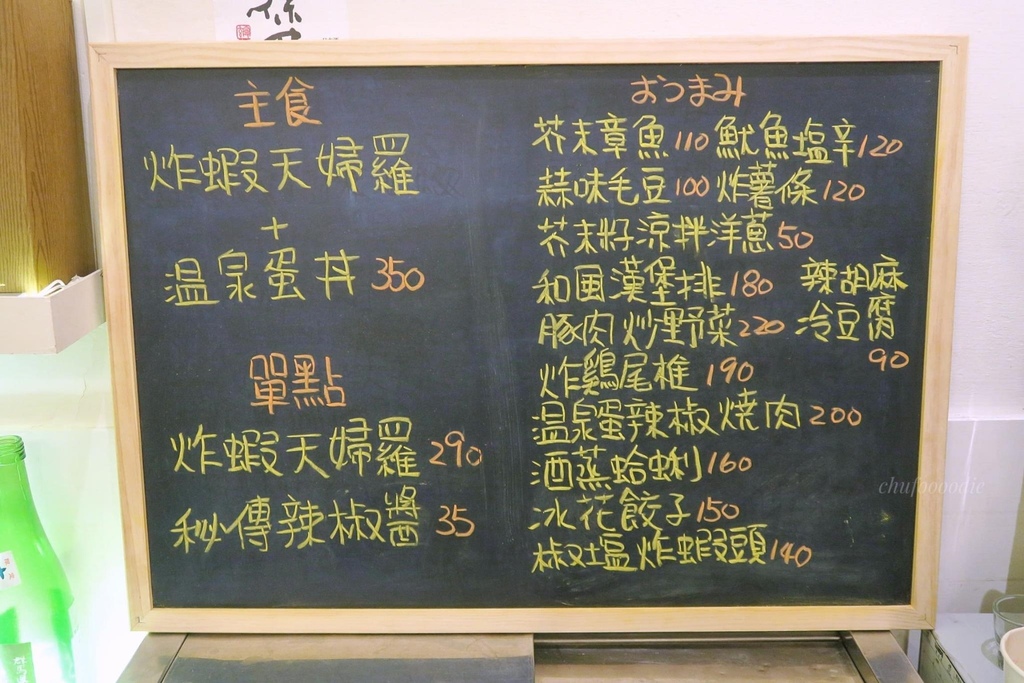 主食
炸蝦天婦羅
+
温泉蛋丼 350
單點
炸蝦天婦羅 290
秘傳辣椒醬 35
おつまみ
芥末章魚 110 魷魚塩辛 120
蒜味毛豆 100 炸薯條 120
芥末籽涼拌洋蔥 50
和風漢堡排 180
辣胡麻
冷豆腐
90
豚肉炒野菜 220
炸鷄尾椎 190
温泉蛋辣椒燒肉 200
酒蒸蛤蜊 160
冰花餃子 150
椒塩炸蝦頭 140
chufoooodie